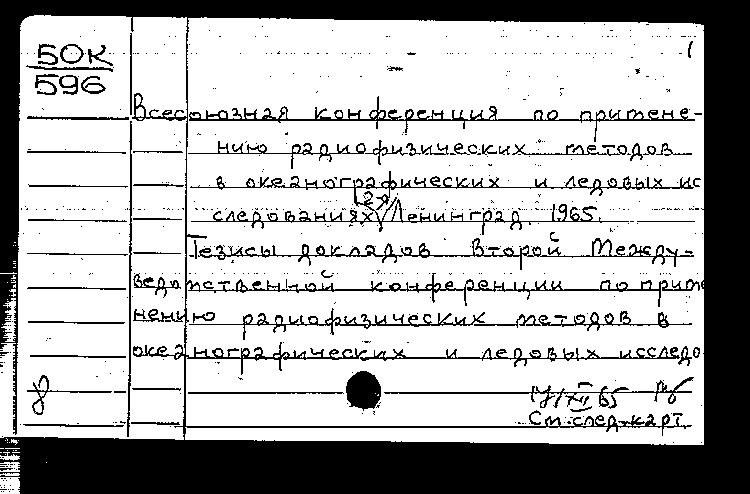 1
50К
596
Всесоюзная конференция по примене-
нию радиофизических методов
в океанографических и ледовых ис
2я
следованиях Ленинград. 1965.
Тезисы докладов Второй Между-
ведомственной конференции по приме
нению радиофизических методов в
океанографических и ледовых исследо
8
XII 65
См. след. карт.